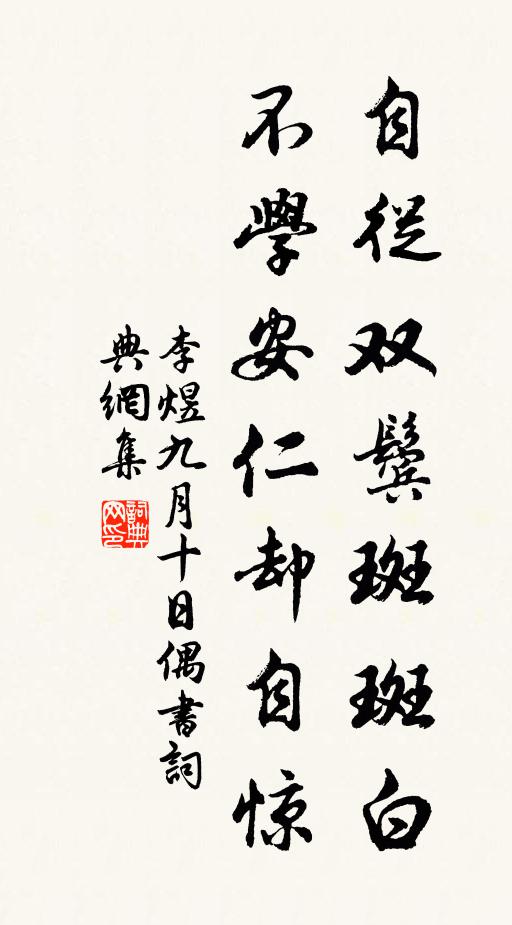 自從双鬢斑斑白
不學安仁却自惊
李煜九月十日偶書詞
典網集
詞典
网印